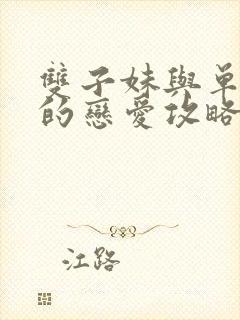 雙子妹與單
的戀愛攻略
江路